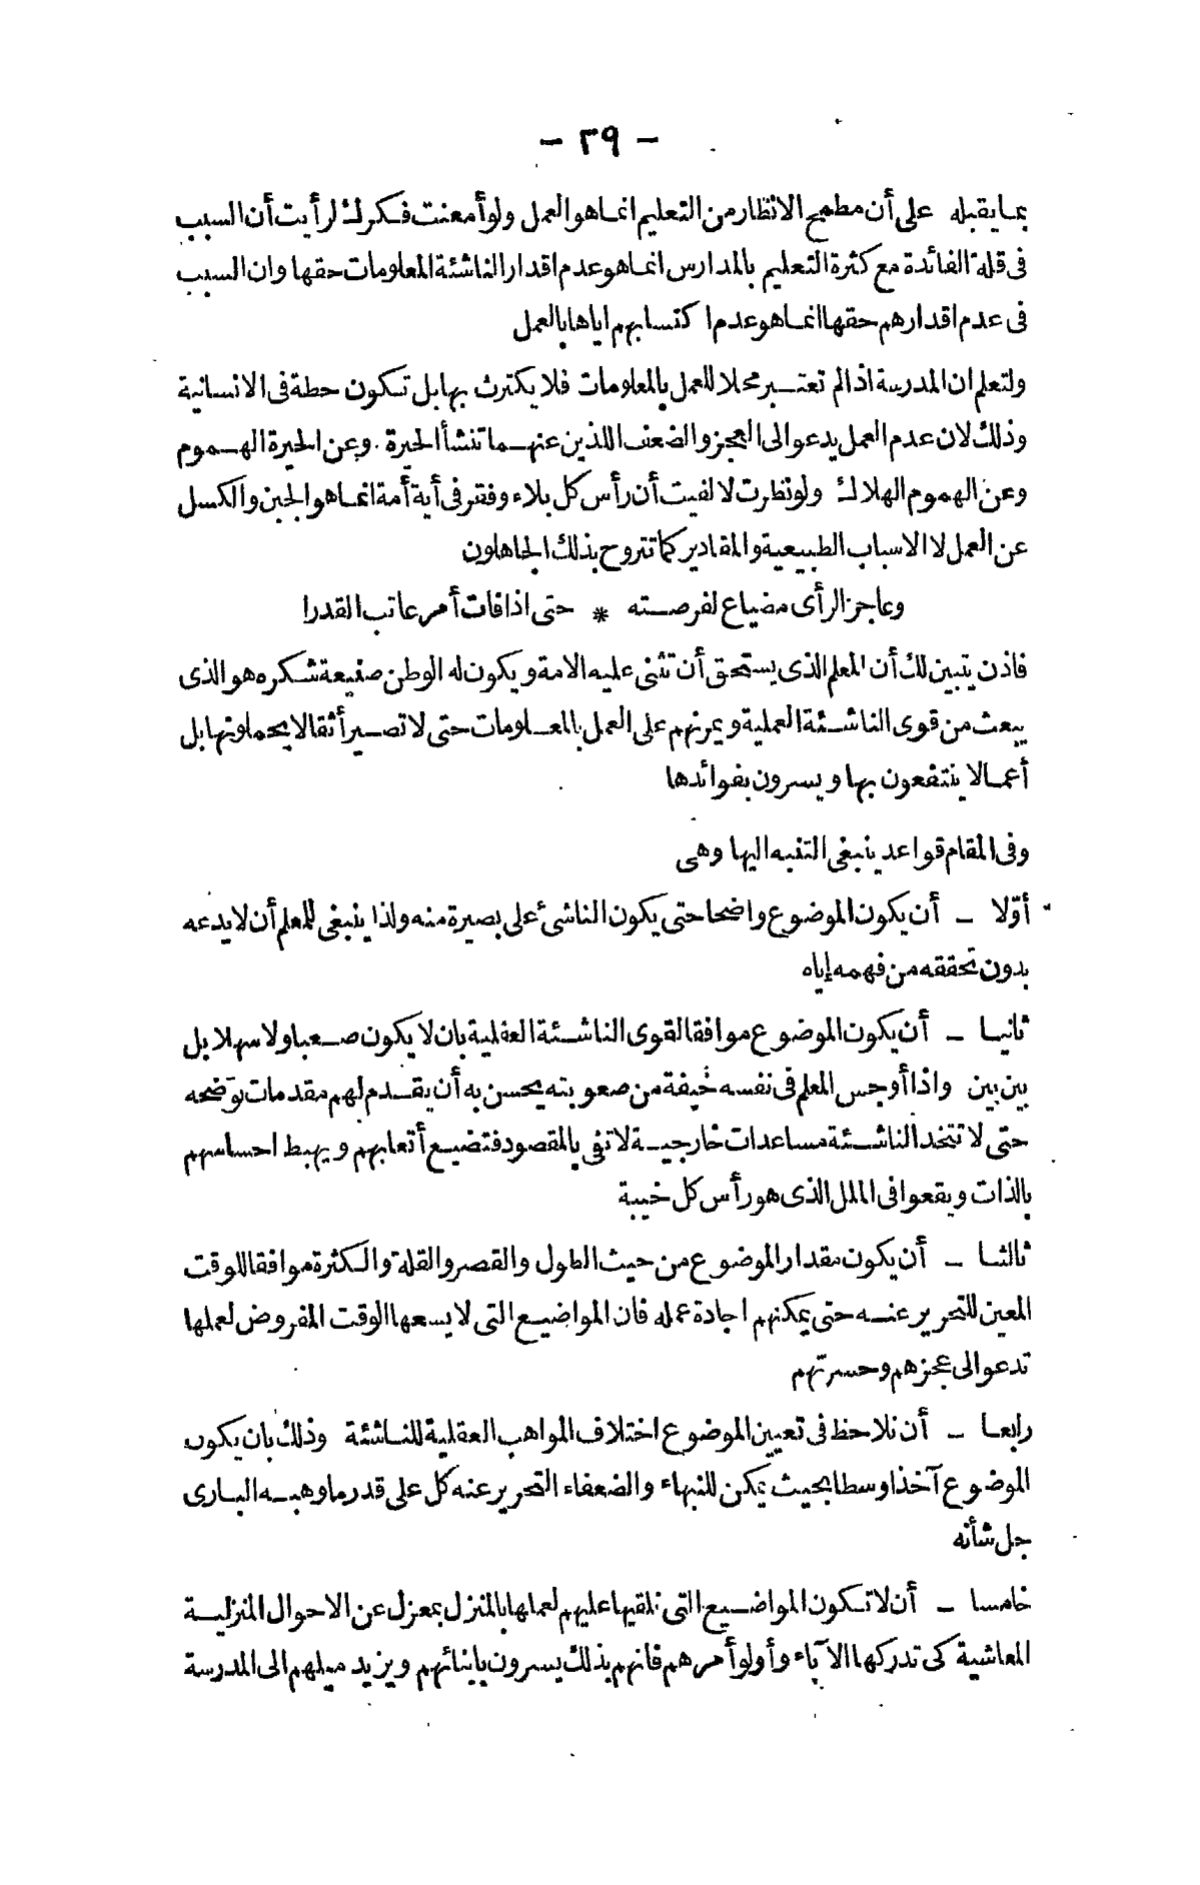 - ٣٩ -
بما يقبله على أن مطمح الانظار من التعليم انما هو العمل ولو أمعنت فكرك لرأيت أن السبب
فى قلة الفائدة مع كثرة التعليم بالمدارس انما هو عدم اقدار الناشئة المعلومات حقها وان السبب
فى عدم اقدارهم حقها انما هو عدم اكتسابهم اياها بالعمل
ولتعلم ان المدرسة اذا لم تعتبر محلا للعمل بالمعلومات فلا يكترث بها بل تكون حطة فى الانسانية
وذلك لان عدم العمل يدعو الى العجز والضعف اللذين عنهما تنشأ الحيرة . وعن الحيرة الهموم
وعن الهموم الهلاك ولو نظرت لالفيت أن رأس كل بلاء وفقر فى أية أمة انما هو الجبن والكسل
عن العمل لا الاسباب الطبيعية والمقادير كما تتروح بذلك الجاهلون
وعاجز الرأى مضياع لفرصته * حتى اذا فات أمر عاتب القدرا
فاذن يتبين لك أن المعلم الذى يستحق أن تثنى عليه الامة ويكون له الوطن صنيعة شكره هو الذى
يبعث من قوى الناشئة العملية ويمرنهم على العمل بالمعلومات حتى لا تصير أثقالا يحملونها بل
أعمالا ينتفعون بها ويسرون بفوائدها
وفى المقام قواعد ينبغى التنبه اليها وهى
أوّلا - أن يكون الموضوع واضحا حتى يكون الناشئ على بصيرة منه ولذا ينبغى للمعلم أن لا يدعه
بدون تحققه من فهمه إياه
ثانيا - أن يكون الموضوع موافقا لقوى الناشئة العقلية بان لا يكون صعبا ولا سهلا بل
بين بين واذا أوجس المعلم فى نفسه خيفة من صعوبته يحسن به أن يقدم لهم مقدمات توضحه
حتى لا تتخذ الناشئة مساعدات خارجية لا تفى بالمقصود فتضيع أتعابهم ويهبط احساسهم
بالذات ويقعوا فى الملل الذى هو رأس كل خيبة
ثالثا - أن يكون مقدار الموضوع من حيث الطول والقصر والقلة والكثرة موافقا للوقت
المعين للتحرير عنه حتى يمكنهم اجادة عمله فان المواضيع التى لا يسعها الوقت المفروض لعملها
تدعو الى عجزهم وحسرتهم
رابعا - أن نلاحظ فى تعيين الموضوع اختلاف المواهب العقلية للناشئة وذلك بان يكون
الموضوع آخذا وسطا بحيث يمكن للنبهاء والضعفاء التحرير عنه كل على قدر ما وهبه البارى
جل شأنه
خامسا - أن لا تكون المواضيع التى نلقيها عليهم لعملها بالمنزل بمعزل عن الاحوال المنزلية
المعاشية كى تدركها الآباء وأولو أمرهم فانهم بذلك يسرون بابنائهم ويزيد ميلهم الى المدرسة